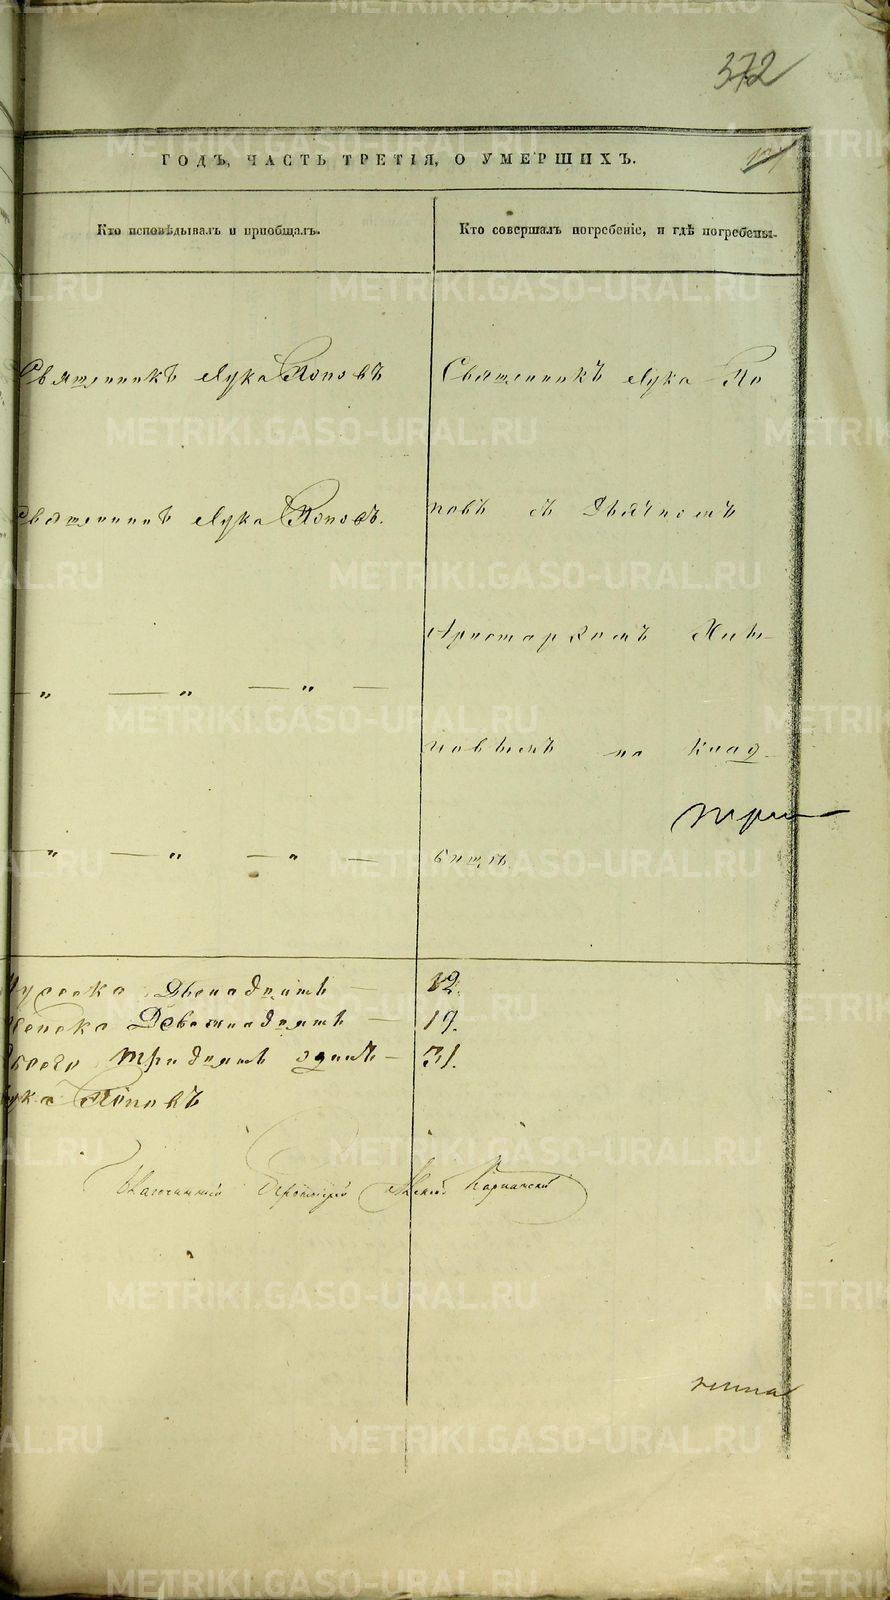 372
ГОДЪ, ЧАСТЬ ТРЕТІЯ, О УМЕРШИХЪ.
Кто исповѣдывалъ и пріобщалъ.
Кто совершалъ погребеніе, и гдѣ погребены.
Священникъ Лука Поповъ
Священникъ Лука По
Священникъ Лука Поповъ.
повъ съ Дьячкомъ
Аристархомъ
на клад
три
бищѣ
Мужеска Двенадцать — 12.
Женска Девятнадцать — 19.
Всего тридцать одинъ — 31.
Лука Поповъ
Благочинный Протоіерей
METRIKI.GASO-URAL.RU